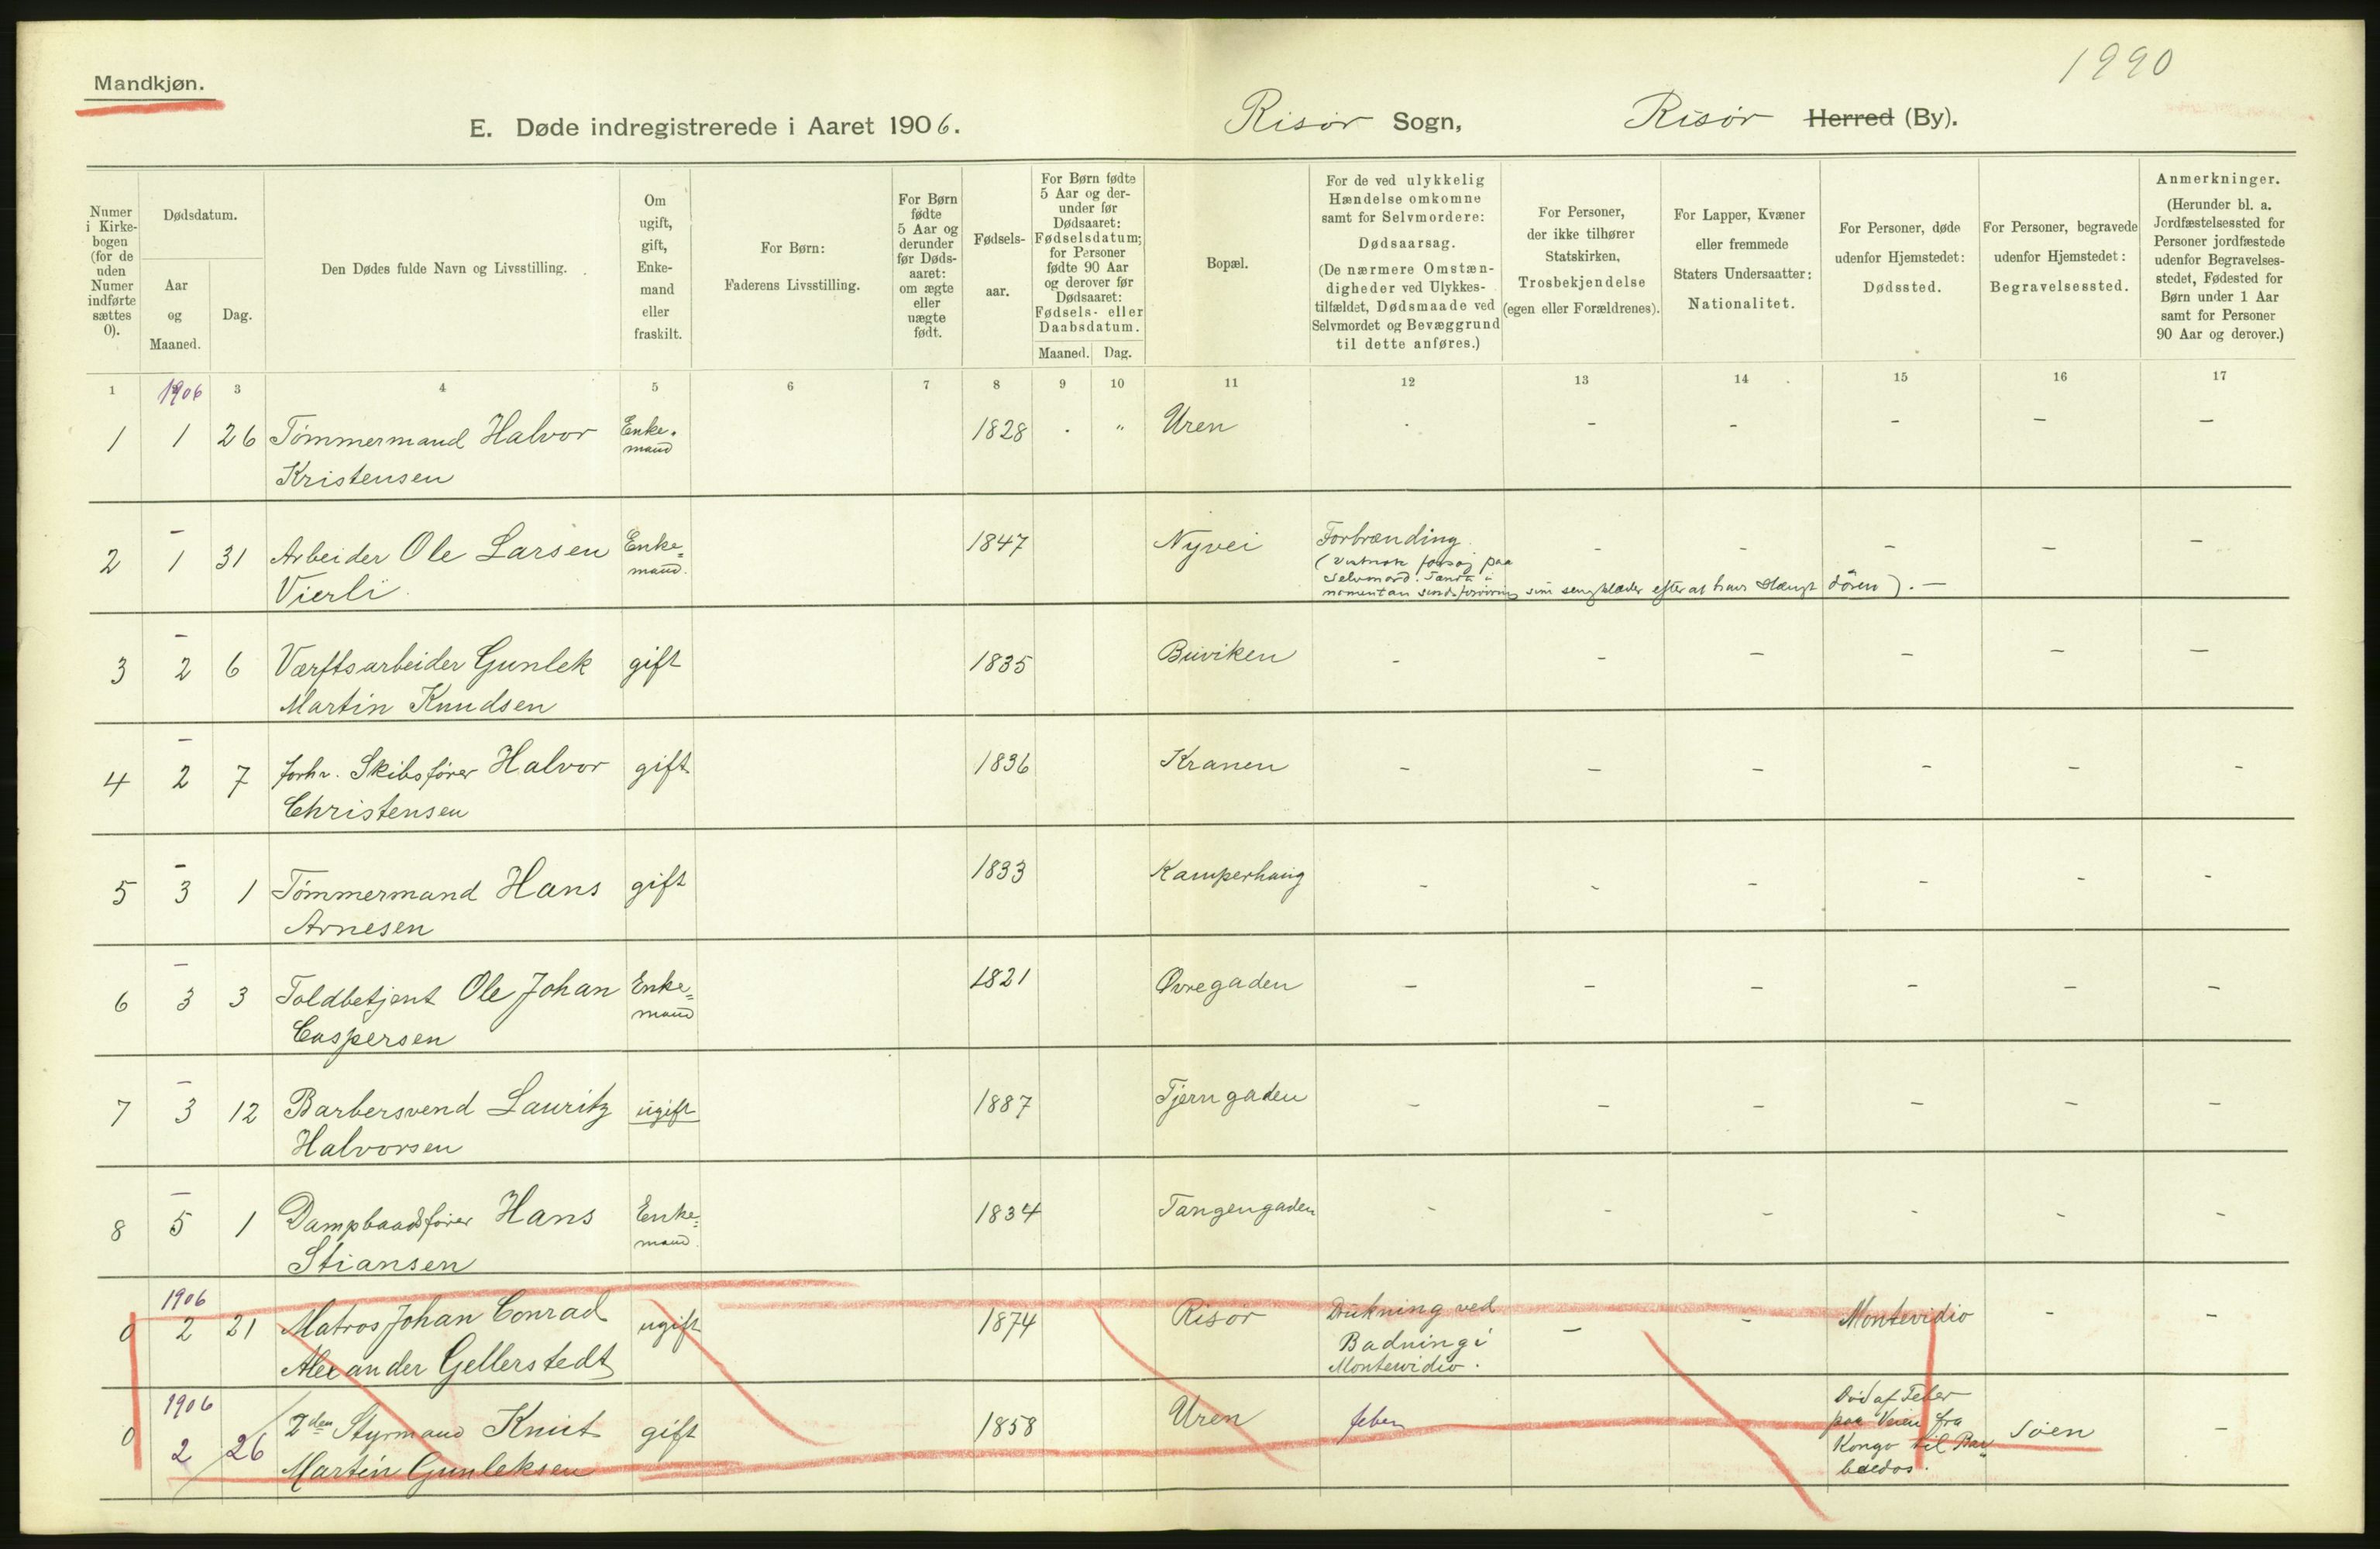 1990
Mandkjøn.
E. Døde indregistrerede i Aaret 1906. Risør Sogn, Risør Herred (By).
Numer i Kirkebogen (for de uden Numer indførte sættes 0).
Dødsdatum.
Aar og Maaned.
Dag.
Den Dødes fulde Navn og Livsstilling.
Om ugift, gift, Enkemand eller fraskilt.
For Børn: Faderens Livsstilling.
For Børn fødte 5 Aar og derunder før Dødsaaret: om ægte eller uægte født.
Fødselsaar.
For Børn fødte 5 Aar og derunder før Dødsaaret: Fødselsdatum; for Personer fødte 90 Aar og derover før Dødsaaret: Fødsels- eller Daabsdatum.
Maaned. Dag.
Bopæl.
For de ved ulykkelig Hændelse omkomne samt for Selvmordere: Dødsaarsag. (De nærmere Omstændigheder ved Ulykkestilfældet, Dødsmaade ved Selvmordet og Bevæggrund til dette anføres.)
For Personer, der ikke tilhører Statskirken, Trosbekjendelse (egen eller Forældrenes).
For Lapper, Kvæner eller fremmede Staters Undersaatter: Nationalitet.
For Personer, døde udenfor Hjemstedet: Dødssted.
For Personer, begravede udenfor Hjemstedet: Begravelsessted.
Anmerkninger. (Herunder bl. a. Jordfæstelsessted for Personer jordfæstede udenfor Begravelsesstedet, Fødested for Børn under 1 Aar samt for Personer 90 Aar og derover.)
1 1906 3 4 5 6 7 8 9 10 11 12 13 14 15 16 17
1 1 26 Tømmermand Halvor Enke- 1828 . " Uren . - - - - -
Kristensen mand
2 - 1 31 Arbeider Ole Larsen Enke= 1847 Nyvei Forbrænding. - - - - -
Vierli. mand. (
paa
Selvmord. Tændt i
momentan sine sengklæder efter at have stængt døren). -
3 - 2 6 Værftsarbeider Gunlek gift 1835 Buviken - - - - - -
Martin Knudsen
4 - 2 7 forhv. Skibsfører Halvor gift 1836 Kranen - - - - - -
Christensen
5 - 3 1 Tømmermand Hans gift 1833 Kamperhaug - - - - - -
Arnesen
6 - 3 3 Toldbetjent Ole Johan Enke= 1821 Øvregaden - - - - - -
Caspersen mand
7 - 3 12 Barbersvend Lauritz ugift 1887 Tjerngaden - - - - - -
Halvorsen
8 - 5 1 Dampbaadsfører Hans Enke= 1834 Tangengaden - - - - - -
Stiansen mand.
1906
0 2 21 Matros Johan Conrad ugift 1874 Risør Drukning ved - - Montevidio - -
Alexander Gellerstedt Badning i
Montevidio.
1906
0 2 26 2den Styrmand Knut gift 1858 Uren feber Død af Feber Søen -
Martin Gunleksen paa Veien fra
Kongo til Bar=
bados.